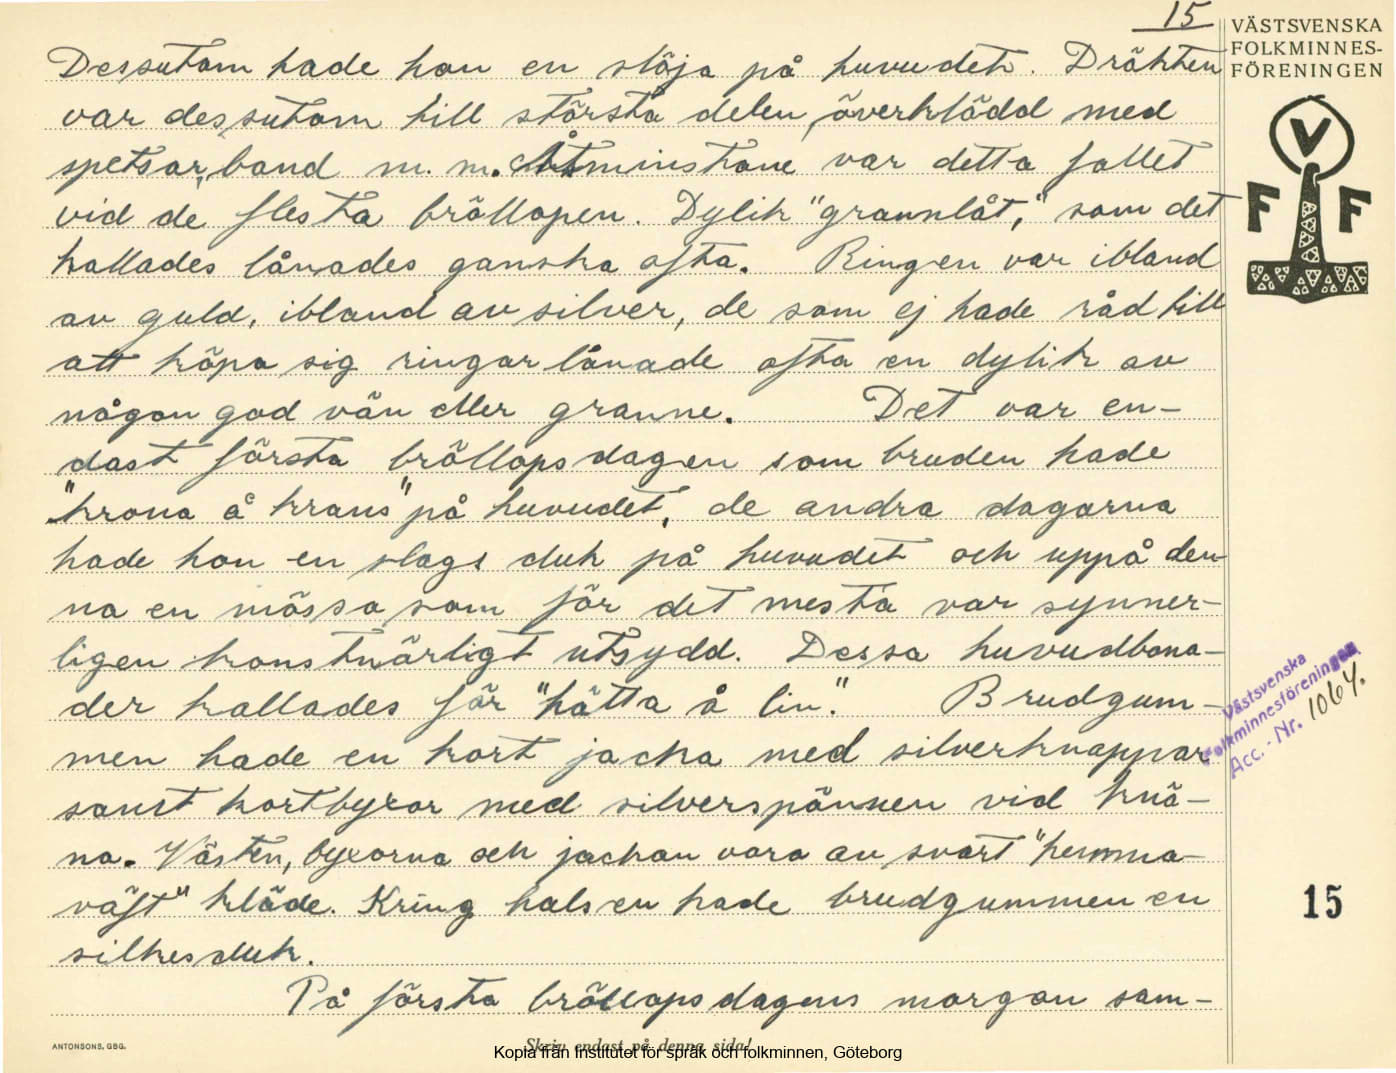 15
VÄSTSVENSKA
FOLKMINNES-
FÖRENINGEN
V
F F
Dessutom hade hon en slöja på huvudet. Dräkten
var dessutom till största delen överklädd med
spetsar, band m. m. Åtminstone var detta fallet
vid de flesta bröllopen. Dylik "grannlåt," som det
kallades lånades ganska ofta. Ringen var ibland
av guld, ibland av silver, de som ej hade råd till
att köpa sig ringar lånade ofta en dylik av
någon god vän eller granne. Det var en-
dast första bröllopsdagen som bruden hade
"krona å krans" på huvudet, de andra dagarna
hade hon en slags duk på huvudet och uppå den-
na en mössa som för det mesta var synner-
ligen konstnärligt utsydd. Dessa huvudbona-
der kallades för "hätta å lin." Brudgum-
men hade en kort jacka med silverknappar
samt kortbyxor med silverspännen vid knä-
na. Västen, byxorna och jackan vora av svart "hemma-
väft" kläde. Kring halsen hade brudgummen en
silkesduk.
På första bröllopsdagens morgon sam-
Västsvenska
Folkminnesföreningen
Acc. - Nr. 1064.
15
ANTONSONS, GBG.
Skriv endast på denna sida!
Kopia från Institutet för språk och folkminnen, Göteborg